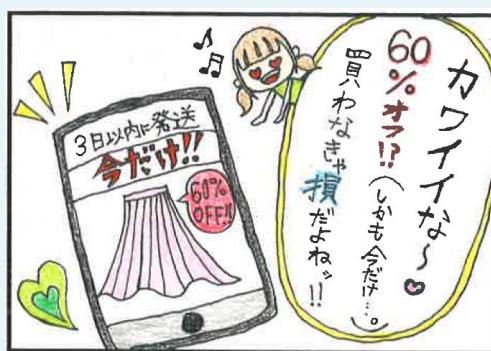 カワイイな〜
60%オフ!?
(しかも今だけ…。)
買わなきゃ
損だよねッ!!
3日以内に発送
今だけ!!
60%
OFF!!